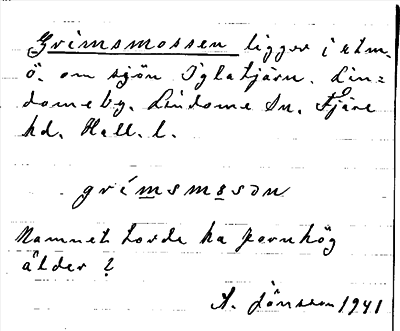 Grimsmossen ligger i utm.
ö. om sjön Iglatjärn. Lin=
domeby. Lindome Sn. Fjäre
hd. Hall. l.
grímsmosən
Namnet torde ha fornhög
ålder?
A. Jönsson 1941